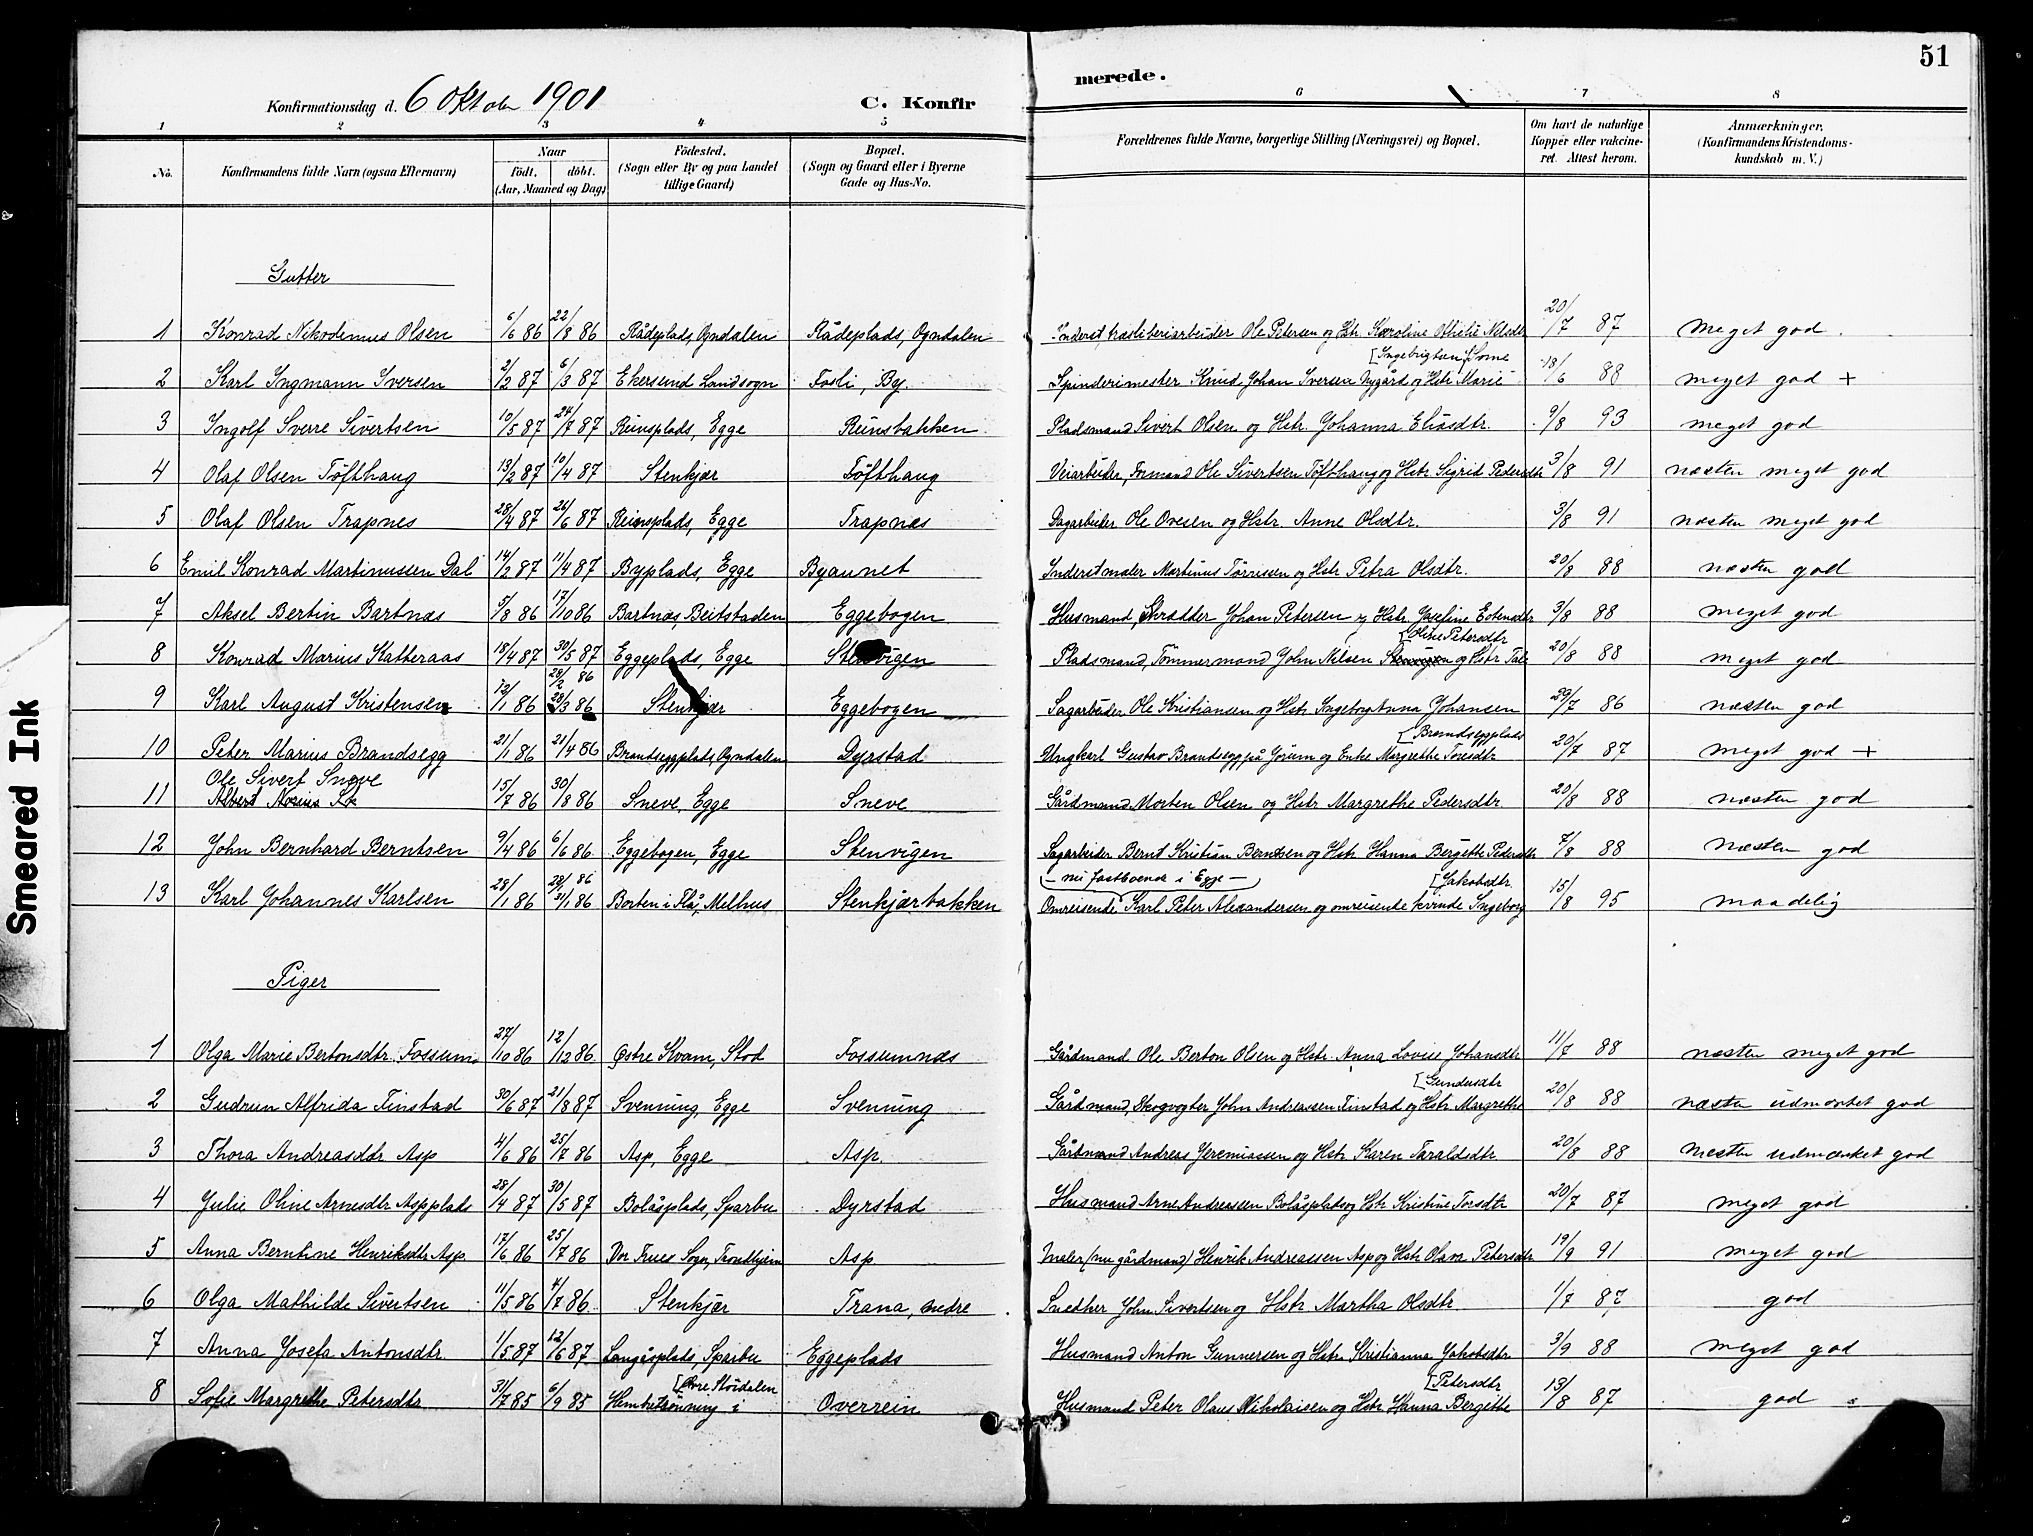 51
Konfirmationsdag d. 6 Oktober 1901
C. Konfirmerede.
1 2 3 4 5 6 7 8
No.
Konfirmandens fulde Navn (ogsaa Efternavn)
Naar
født. døbt.
(Aar, Maaned og Dag)
Fødested.
(Sogn eller By og paa Landet
tillige Gaard)
Bopæl.
(Sogn og Gaard eller i Byerne
Gade og Hus-No.
Forældrenes fulde Navne, borgerlige Stilling (Næringsvei) og Bopæl.
Om havt de naturlige
Kopper eller vakcine-
ret. Attest herom.
Anmærkninger.
(Konfirmandens Kristendoms-
kundskab m. V.)
Gutter
1 Konrad Nikodemus Olsen 6/6 86 22/8 86 Rådeplads, Ogndalen Rådeplads, Ogndalen Inderst, træsliberiarbeider Ole Petersen og Hstr. Karoline Otilie Nilsdtr 20/7 87 meget god.
2 Karl Ingmann Iversen 2/2 87 6/3 87 Ekersund Landsogn Fosli, By. Spinderimester Knud Johan Iversen Nygård og Hstr Marie [Ingebrigtsen Lome 18/6 88 meget god +
3 Ingolf Sverre Sivertsen 10/5 87 24/7 87 Reinsplads, Egge Reinsbakken Pladsmand Sivert Olsen og Hstr. Johanna Eliasdtr. 9/8 93 meget god
4 Olaf Olsen Tøfthaug 13/2 87 10/4 87 Stenkjær Tøfthaug Veiarbeider, Formand Ole Sivertsen Tøfthaug og Hstr Sigrid Pedersdtr 3/8 91 næsten meget god
5 Olaf Olsen Trapnes 28/4 87 26/6 87 Reinsplads, Egge Trapnes Dagarbeider Ole Ovesen og Hstr. Anne Olsdtr. 3/8 91 næsten meget god
6 Emil Konrad Martinussen Dal 14/2 87 11/4 87 Byplads, Egge Byaunet Inderst maler Martinus Tørrissen og Hstr Petra Olsdtr. 20/8 88 næsten god
7 Aksel Bertin Bartnæs 5/8 86 17/10 86 Bartnæs, Beitstaden Eggebogen Husmand, Skrædder Johan Petersen og Hstr. Josefine Estensdtr 3/8 88 meget god
8 Konrad Marius Katteraas 18/4 87 30/5 87 Eggeplads, Egge Stenvigen Pladsmand, Tømmermand John Nilsen Stenvigen og Hstr Tale [Oline Petersdtr 20/8 88 meget god
9 Karl August Kristensen 12/1 86 28/2 86 28/3 86 Stenkjær Eggebogen Sagarbeider Ole Kristiansen og Hstr. Ingeborg Anna Johansen 29/7 86 næsten god
10 Peter Marius Brandsegg 21/1 86 21/4 86 Brandseggplads, Ogndalen Dyrstad Ungkarl Gustav Brandsegg på Jørum og Enke Margrethe Toresdtr [Brandseggplads 20/7 87 meget god +
11 Ole Sivert Sneve 15/7 86 30/8 86 Sneve, Egge Sneve Gårdmand Morten Olsen og Hstr Margrethe Pedersdtr 20/8 88 næsten god
12 John Bernhard Berntsen 9/4 86 6/6 86 Eggebogen, Egge Stenvigen Sagarbeider Bernt Kristian Berntsen og Hstr. Hanna Bergette Pedersdtr 7/8 88 næsten god
13 Karl Johannes Karlsen 28/1 86 28/1 86 31/1 86 Borten i Flå, Melhus Stenkjærbakken – nu fastboende i Egge – Omreisende Karl Peter Alexandersen og omreisende kvinde Ingeborg [Jakobsdtr. 15/8 95 maadelig
Piger
1 Olga Marie Bertonsdtr. Fossum 27/10 86 12/12 86 Østre Kvam, Stod Fossumnæs Gårdmand Ole Berton Olsen og Hstr. Anna Lovise Johansdtr 11/7 88 næsten meget god
2 Gudrun Alfrida Tinstad 30/6 87 21/8 87 Svenning, Egge Svenning Gårdmand, Skogvogter John Andreassen Tinstad og Hstr. Margrethe [Gundersdtr 20/8 88 næsten udmærket god
3 Thora Andreasdtr Asp 4/6 86 25/7 86 Asp, Egge Asp. Gårdmand Andreas Jeremiassen og Hstr Karen Taraldsdtr 20/8 88 næsten udmærket god
4 Julie Oline Arnesdtr Aspplads 28/4 87 30/5 87 Bolåsplads, Sparbu Dyrstad Husmand Arne Andreassen Bolåsplads og Hstr Kristine Torsdtr 20/7 87 meget god
5 Anna Berntine Henriksdtr Asp 17/6 86 25/7 86 Vor Frues Sogn, Trondhjem Asp Maler (nu gårdmand) Henrik Andreassen Asp og Hstr Olava Petersdtr 19/9 91 meget god
6 Olga Mathilde Sivertsen 11/5 86 4/7 86 Stenkjær Trana, nedre Snedker John Sivertsen og Hstr Martha Olsdtr 1/7 87 god
7 Anna Josefa Antonsdtr 1/5 87 12/6 87 Langåsplads, Sparbu Eggeplads Husmand Anton Gunnersen og Hstr Kristianna Jakobsdtr 3/9 88 meget god
8 Sofie Margrethe Petersdtr 31/7 85 6/9 85 i [Øvre Stördalen Overrein Husmand Peter Olaus Nikolaisen og Hstr Hanna Bergitte [Petersdtr 13/8 87 god
Smeared Ink